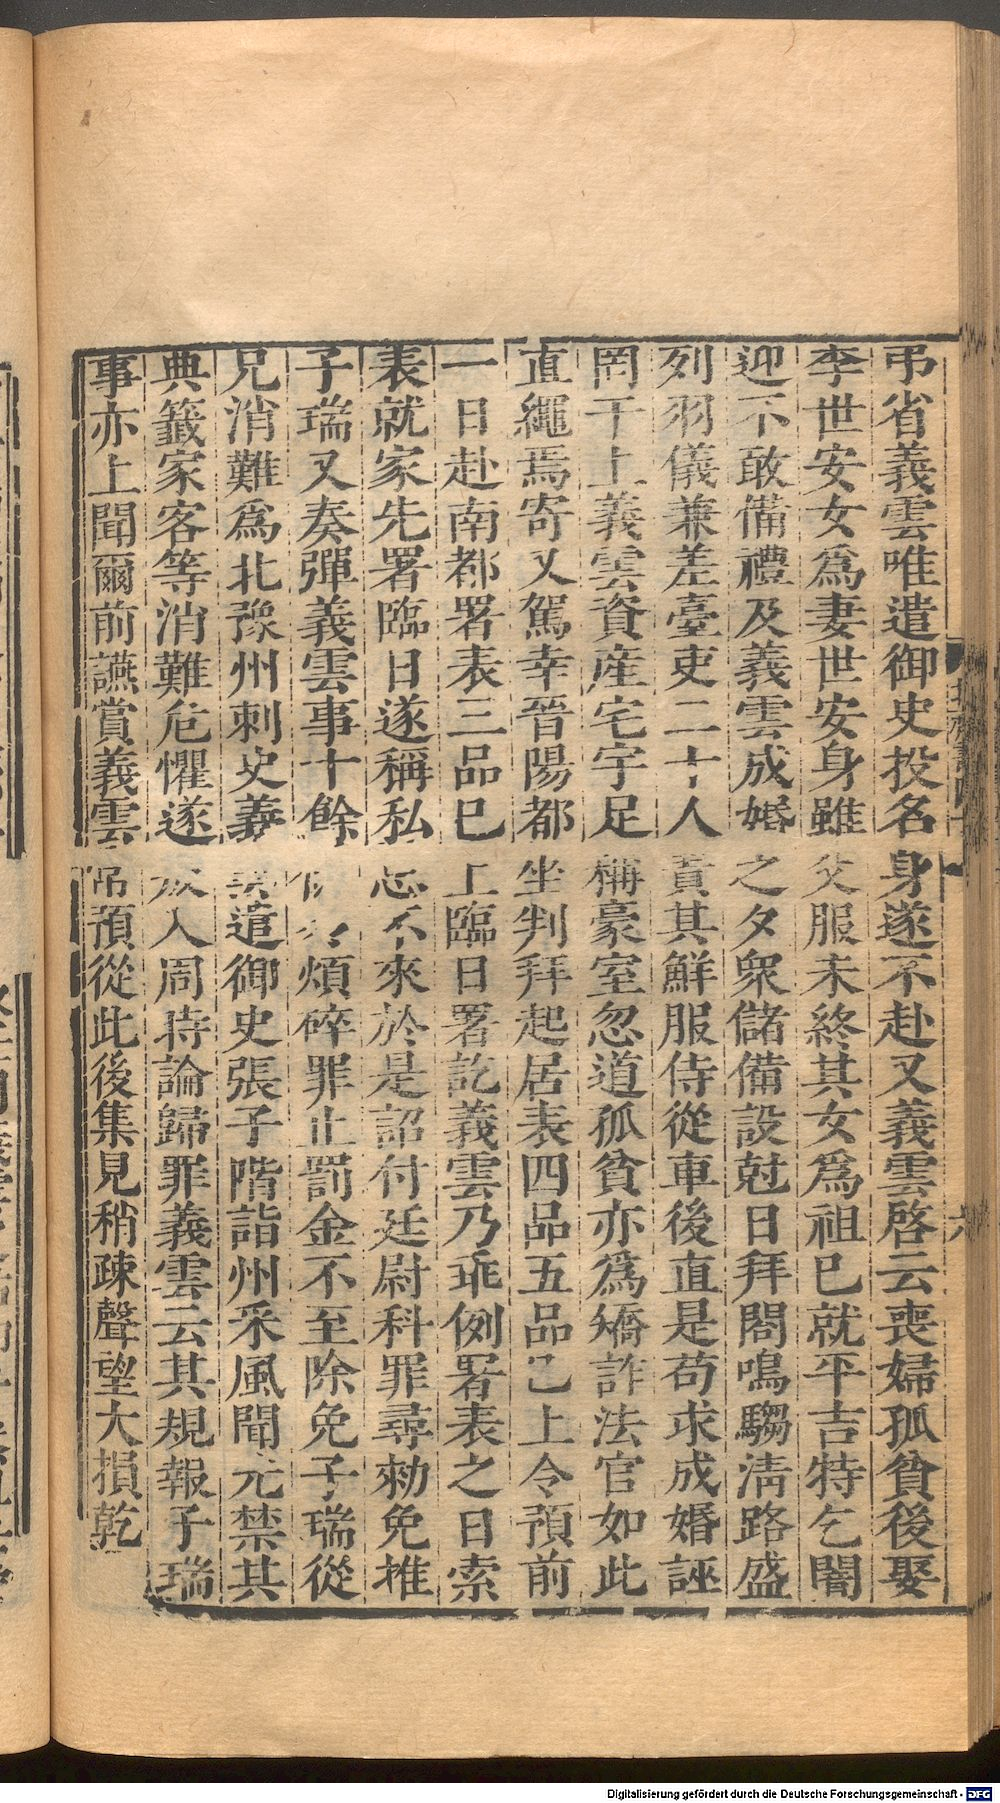 弔省義雲唯遣御史投名身遂不赴又義雲啓云喪婦孤貧後娶
李世安女爲妻世安身雖父服未終其女爲祖巳就平吉特乞闇
迎不敢備禮及義雲成婚之夕衆儲備設尅日拜閣鳴騶淸路盛
列羽儀兼差臺吏二十人責其鮮服侍從車後直是苟求成婚誣
罔干上義雲資産宅宇足稱豪室忽道孤貧亦爲矯詐法官如此
直繩焉寄又駕幸晉陽都坐判拜起居表四品五品已上令預前
一日赴南都署表三品巳上臨日署訖義雲乃乖例署表之日索
表就家先署臨日遂稱私忌不來於是詔付廷尉科罪尋勑免推
子瑞又奏彈義雲事十餘條多煩碎罪止罰金不至除免子瑞從
兄消難爲北豫州刺史義雲遣御史張子階詣州采風聞先禁其
典籖家客等消難危懼遂叛入周時論歸罪義雲云其規報子瑞
事亦上聞爾前讌賞義雲常預從此後集見稍疎聲望大損乾
六
Digitalisierung gefördert durch die Deutsche Forschungsgemeinschaft - DFG